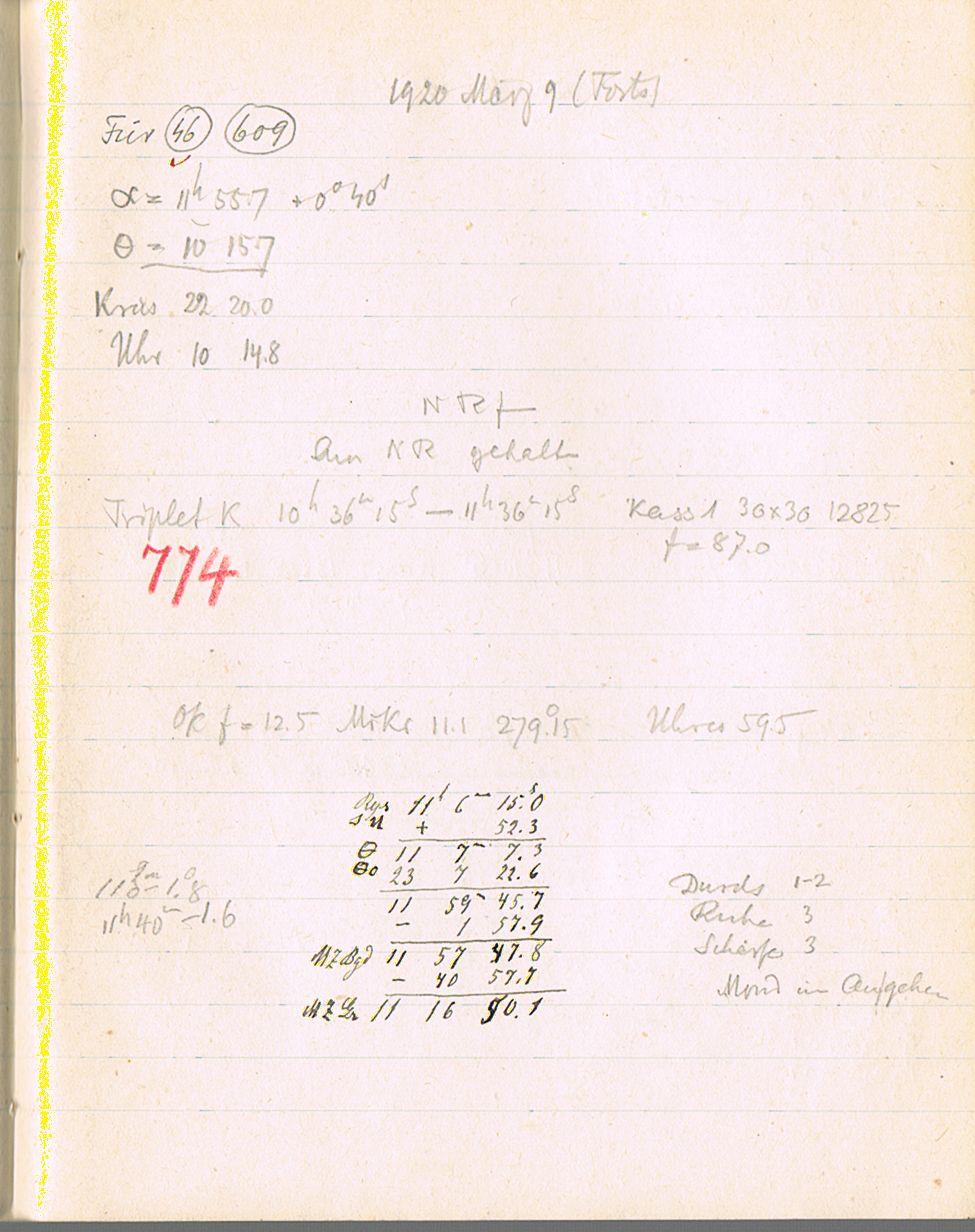 1920 März 9 (Forts)
Für 46 609
α = 11h 55.7 + 0° 40'
θ = 10 15.7
Kreis 22 20.0
Uhr 10 14.8
N R f
Am NR gehalten
Triplet K 10h 36m 15s — 11h 36m 15s Kass 1 30x30 12825
f = 87.0
774
Ok f = 12.5 Mikr 11.1 279.°15 Uhren 59.5
11h 6m 15.s0
+ 52.3
θ 11 7m 7.3
θ0 23 7 21.6
11 59 45.7
11h40m -1.6
- 1 57.9
MZ Bgd 11 57 47.8
- 40 57.7
MZ Gr 11 16 50.1
Durchs 1-2
Ruhe 3
Schärfe 3
Mond im Aufgehen